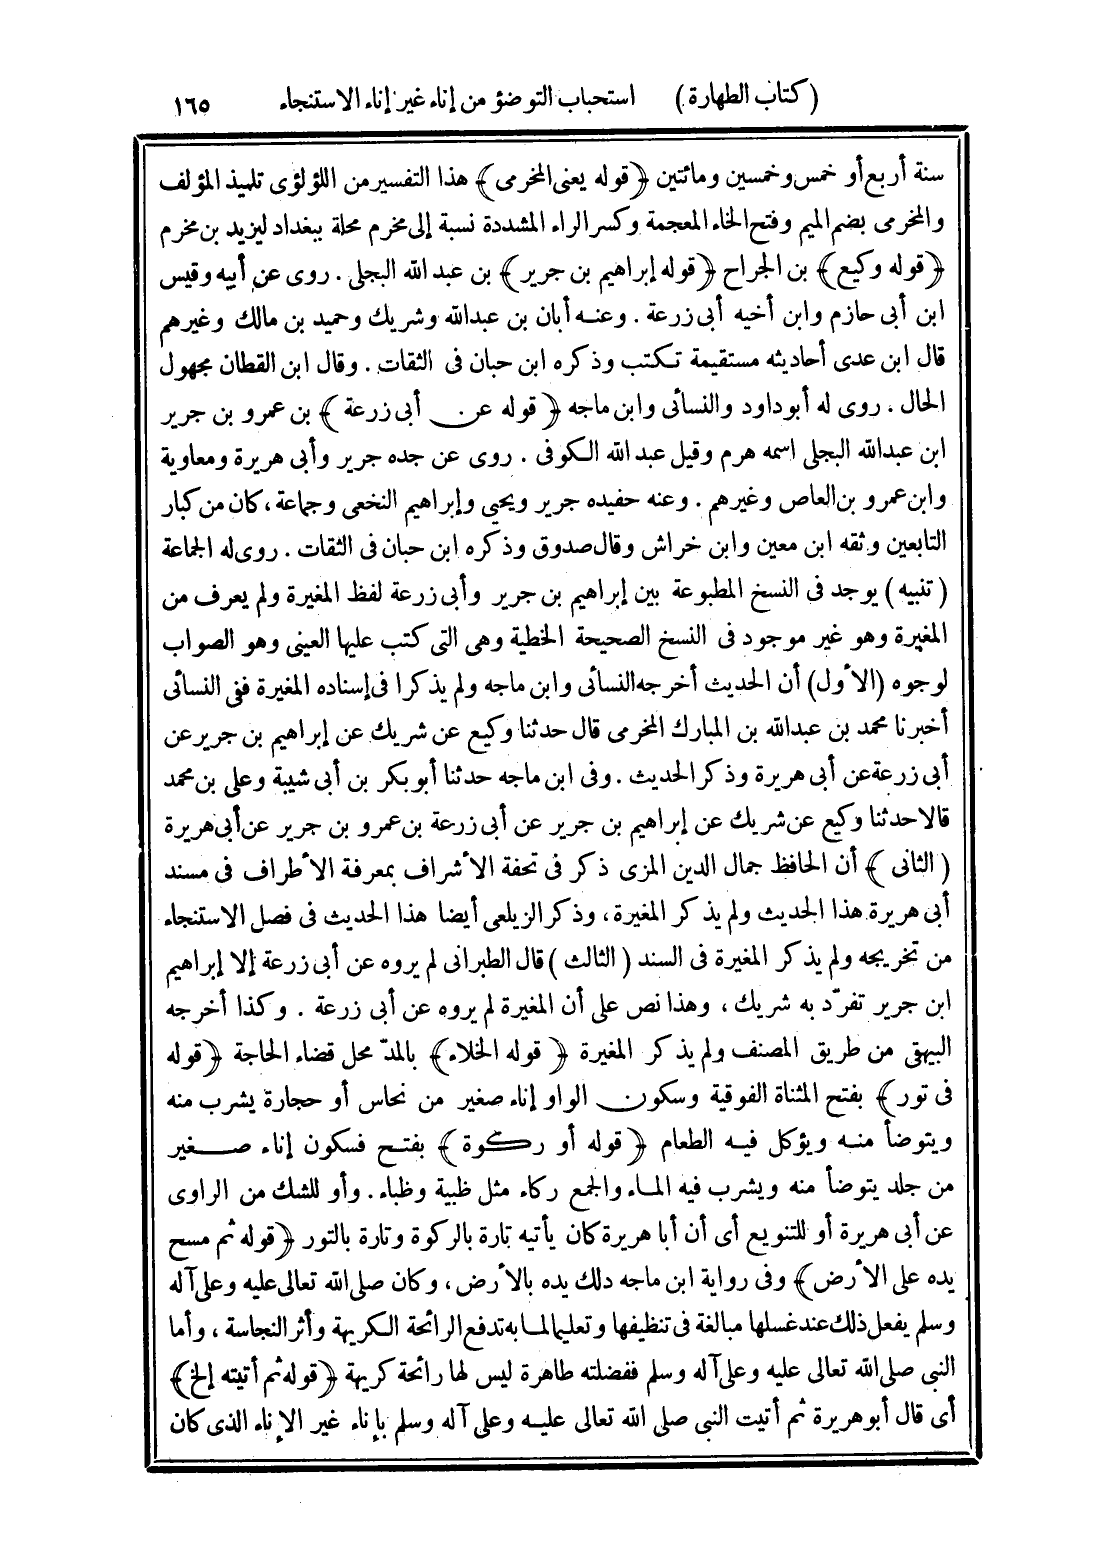 (كتاب الطهارة) استحباب التوضؤ من إناء غير إناء الاستنجاء ١٦٥
سنة أربع أو خمس وخمسين ومائتين ﴿قوله يعنى المخرمى﴾ هذا التفسير من اللؤلؤى تلميذ المؤلف
والمخرمى بضم الميم وفتح الخاء المعجمة وكسر الراء المشددة نسبة إلى مخرم محلة ببغداد ليزيد بن مخرم
﴿قوله وكيع﴾ بن الجراح ﴿قوله إبراهيم بن جرير﴾ بن عبد الله البجلى . روى عن أبيه وقيس
ابن أبى حازم وابن أخيه أبى زرعة . وعنه أبان بن عبد الله وشريك وحميد بن مالك وغيرهم
قال ابن عدى أحاديثه مستقيمة تكتب وذكره ابن حبان فى الثقات . وقال ابن القطان مجهول
الحال . روى له أبو داود والنسائى وابن ماجه ﴿قوله عن أبى زرعة﴾ بن عمرو بن جرير
ابن عبد الله البجلى اسمه هرم وقيل عبد الله الكوفى . روى عن جده جرير وأبى هريرة ومعاوية
وابن عمرو بن العاص وغيرهم . وعنه حفيده جرير ويحيى وإبراهيم النخعى وجماعة، كان من كبار
التابعين وثقه ابن معين وابن خراش وقال صدوق وذكره ابن حبان فى الثقات . روى له الجماعة
(تنبيه) يوجد فى النسخ المطبوعة بين إبراهيم بن جرير وأبى زرعة لفظ المغيرة ولم يعرف من
المغيرة وهو غير موجود فى النسخ الصحيحة الخطية وهى التى كتب عليها العينى وهو الصواب
لوجوه (الأول) أن الحديث أخرجه النسائى وابن ماجه ولم يذكرا فى إسناده المغيرة ففى النسائى
أخبرنا محمد بن عبد الله بن المبارك المخرمى قال حدثنا وكيع عن شريك عن إبراهيم بن جرير عن
أبى زرعة عن أبى هريرة وذكر الحديث . وفى ابن ماجه حدثنا أبو بكر بن أبى شيبة وعلى بن محمد
قالا حدثنا وكيع عن شريك عن إبراهيم بن جرير عن أبى زرعة بن عمرو بن جرير عن أبى هريرة
(الثانى﴾ أن الحافظ جمال الدين المزى ذكر فى تحفة الأشراف بمعرفة الأطراف فى مسند
أبى هريرة هذا الحديث ولم يذكر المغيرة، وذكر الزيلعى أيضا هذا الحديث فى فصل الاستنجاء
من تخريجه ولم يذكر المغيرة فى السند (الثالث) قال الطبرانى لم يروه عن أبى زرعة إلا إبراهيم
ابن جرير تفرّد به شريك، وهذا نص على أن المغيرة لم يروه عن أبى زرعة . وكذا أخرجه
البيهقى من طريق المصنف ولم يذكر المغيرة ﴿قوله الخلاء﴾ بالمدّ محل قضاء الحاجة ﴿قوله
فى تور﴾ بفتح المثناة الفوقية وسكون الواو إناء صغير من نحاس أو حجارة يشرب منه
ويتوضأ منه ويؤكل فيه الطعام ﴿قوله أو ركوة﴾ بفتح فسكون إناء صغير
من جلد يتوضأ منه ويشرب فيه الماء والجمع ركاء مثل ظبية وظباء . وأو للشك من الراوى
عن أبى هريرة أو للتنويع أى أن أبا هريرة كان يأتيه تارة بالركوة وتارة بالتور ﴿قوله ثم مسح
يده على الأرض﴾ وفى رواية ابن ماجه دلك يده بالأرض، وكان صلى الله تعالى عليه وعلى آله
وسلم يفعل ذلك عند غسلها مبالغة فى تنظيفها وتعليما لما به تدفع الرائحة الكريهة وأثر النجاسة، وأما
النبى صلى الله تعالى عليه وعلى آله وسلم ففضلته طاهرة ليس لها رائحة كريهة ﴿قوله ثم أتيته إلخ﴾
أى قال أبو هريرة ثم أتيت النبى صلى الله تعالى عليه وعلى آله وسلم بإناء غير الإناء الذى كان